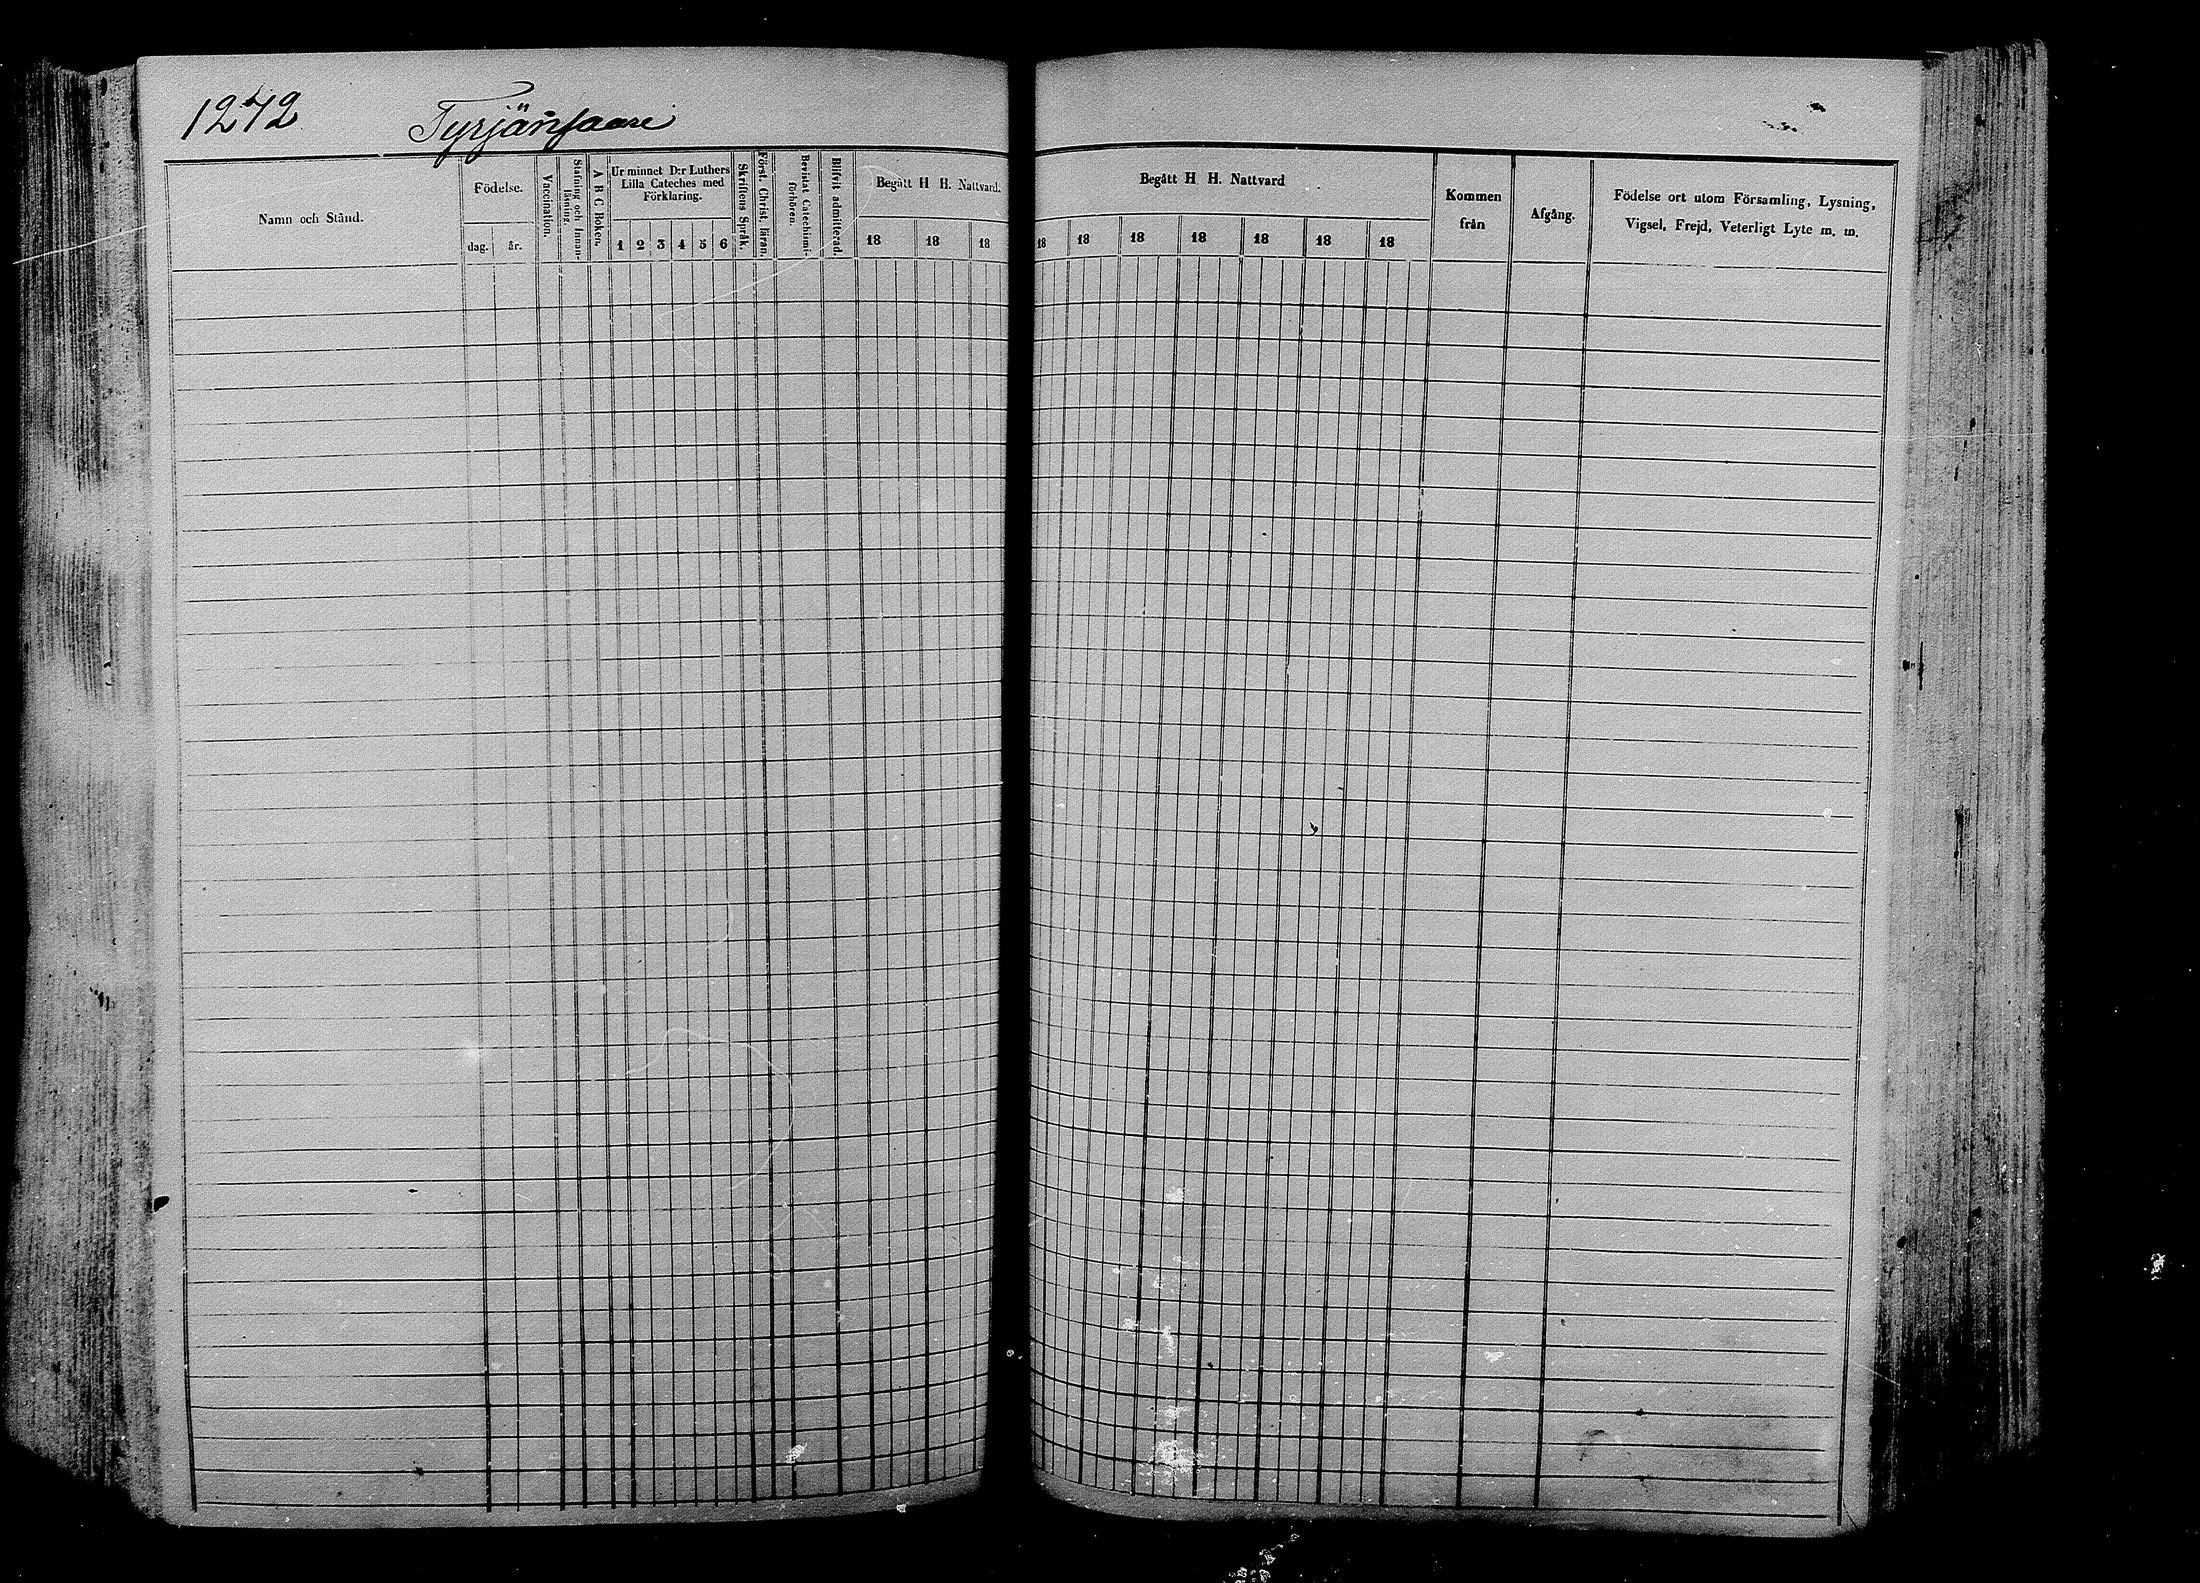 1272 Tyrjänsaari
Namn och Stånd.
Födelse.
dag. år.
Vaccination.
Stafning och Innan-
läsning.
A B C Boken.
Ur minnet D:r Luthers
Lilla Cateches med
Förklaring.
1 2 3 4 5 6
Skriftens Språk.
Först. Christ. läran.
Bevistat Catechismi-
förhören.
Blifvit admitterad.
Begått H H. Nattvard.
18 18 18
Begått H H. Nattvard
18 18 18 18 18 18 18
Kommen
från
Afgång.
Födelse ort utom Församling, Lysning,
Vigsel, Frejd, Veterligt Lyte m. m.